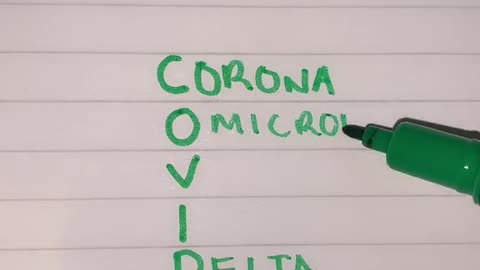 CORONA
OMICRO
V
I
DELTA